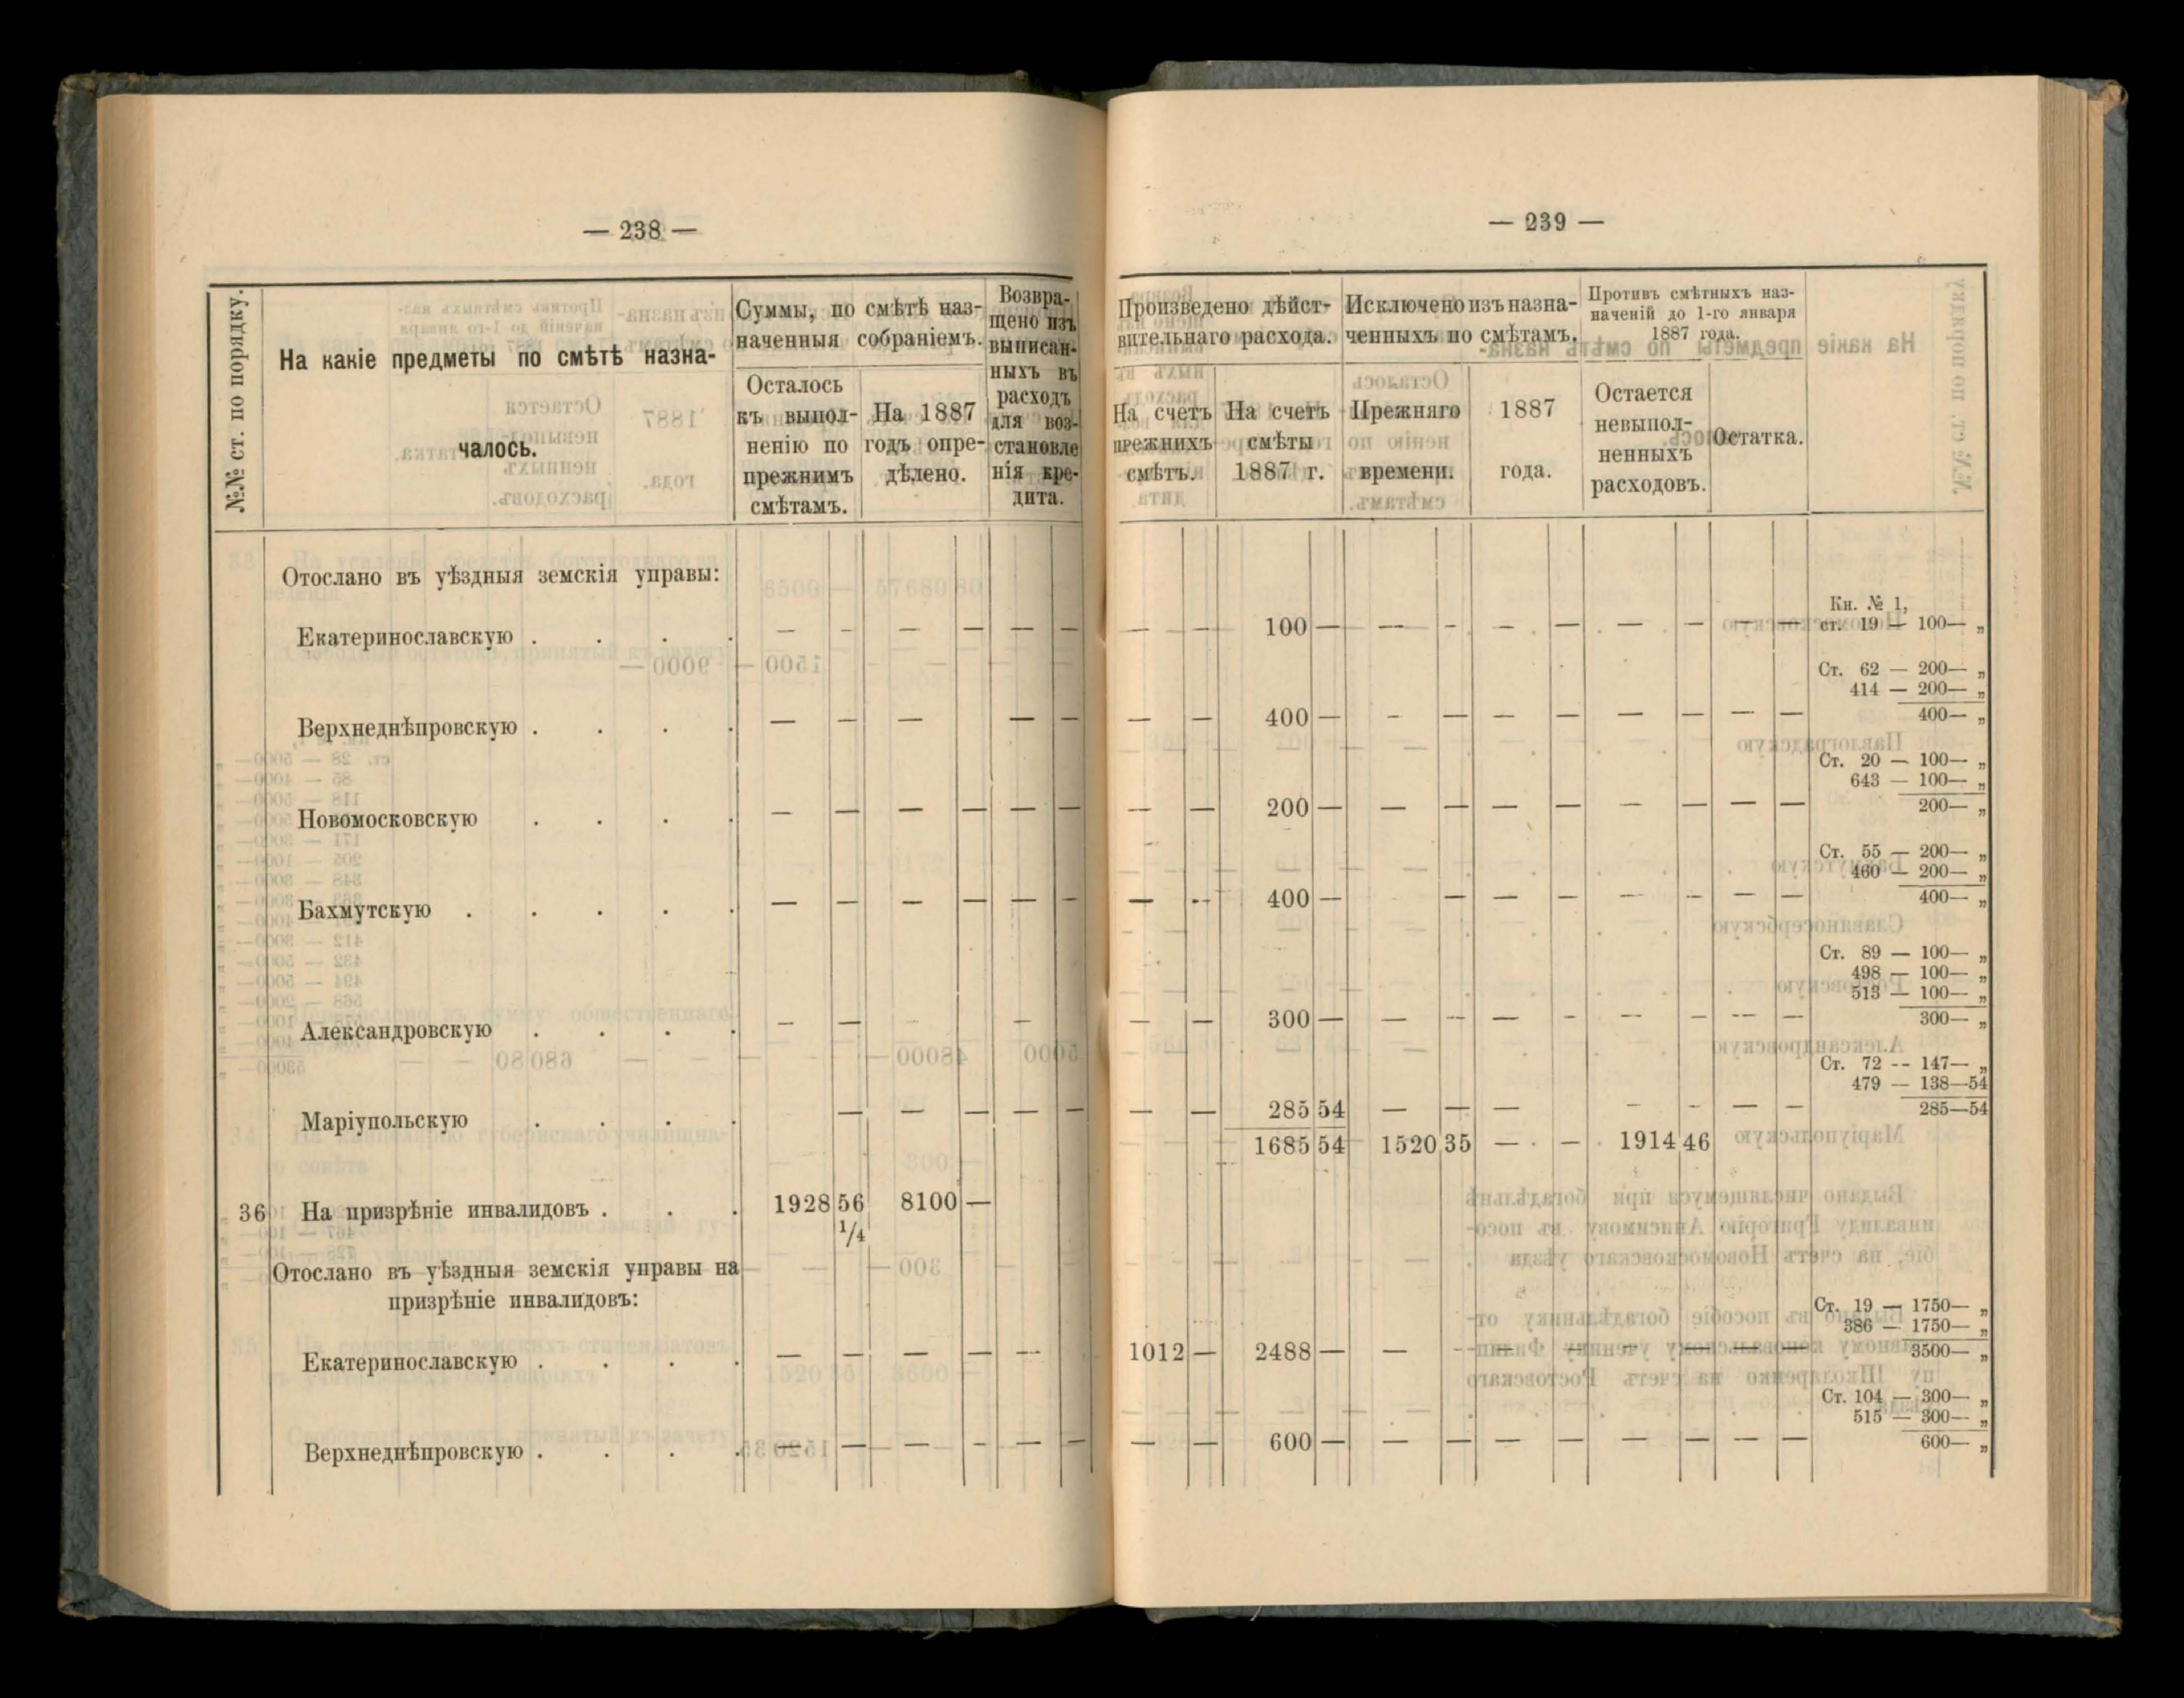 — 238 —
№№ ст. по порядку.
На какіе предметы по смѣтѣ назна-
чалось.
Суммы, по смѣтѣ наз-
наченныя собраніемъ.
Осталось
къ выпол-
ненію по
прежнимъ
смѣтамъ.
На 1887
годъ опре-
дѣлено.
Возвра-
щено изъ
выписан-
ныхъ въ
расходъ
для воз-
становле
нія кре-
дита.
Отослано въ уѣздныя земскія управы:
Екатеринославскую . . . . — — — — — —
Верхнеднѣпровскую . . . . — — — — —
Новомосковскую . . . . — — — — — —
Бахмутскую . . . . . — — — — — —
Александровскую . . . . — — — —
Маріупольскую . . . . — — — — —
36 На призрѣніе инвалидовъ . . . 1928 56 8100 —
1/4
Отослано въ уѣздныя земскія управы на
призрѣніе инвалидовъ:
Екатеринославскую . . . . — — — — —
Верхнеднѣпровскую . . . . — — — - — —
— 239 —
Произведено дѣйст-
вительнаго расхода.
На счетъ
прежнихъ
смѣтъ.
На счетъ
смѣты
1887 г.
Исключено изъ назна-
ченныхъ по смѣтамъ.
Прежняго
времени.
1887
года.
Противъ смѣтныхъ наз-
наченій до 1-го января
1887 года.
Остается
невыпол-
ненныхъ
расходовъ.
Остатка.
Кн. № 1,
— — 100 — — - — — — — — — ст. 19 — 100— „
Ст. 62 — 200— „
414 — 200— „
— — 400 — - — — — — — — — 400— „
Ст. 20 — 100— „
643 — 100— „
— — 200 — — — — — — — — — 200— „
Ст. 55 — 200— „
460 — 200— „
— -- 400 — — — — — - — — 400— „
Ст. 89 — 100— „
498 — 100— „
513 — 100— „
— — 300 — — -- — - — — — — 300— „
Ст. 72 -- 147— „
479 — 138—54
— — 285 54 — — — - - — — 285—54
1685 54 1520 35 — — 1914 46
Ст. 19 — 1750— „
386 — 1750— „
1012 — 2488 — — - — — — — — — 3500— „
Ст. 104 — 300— „
515 — 300— „
— — 600 — — — — — — — — — 600— „